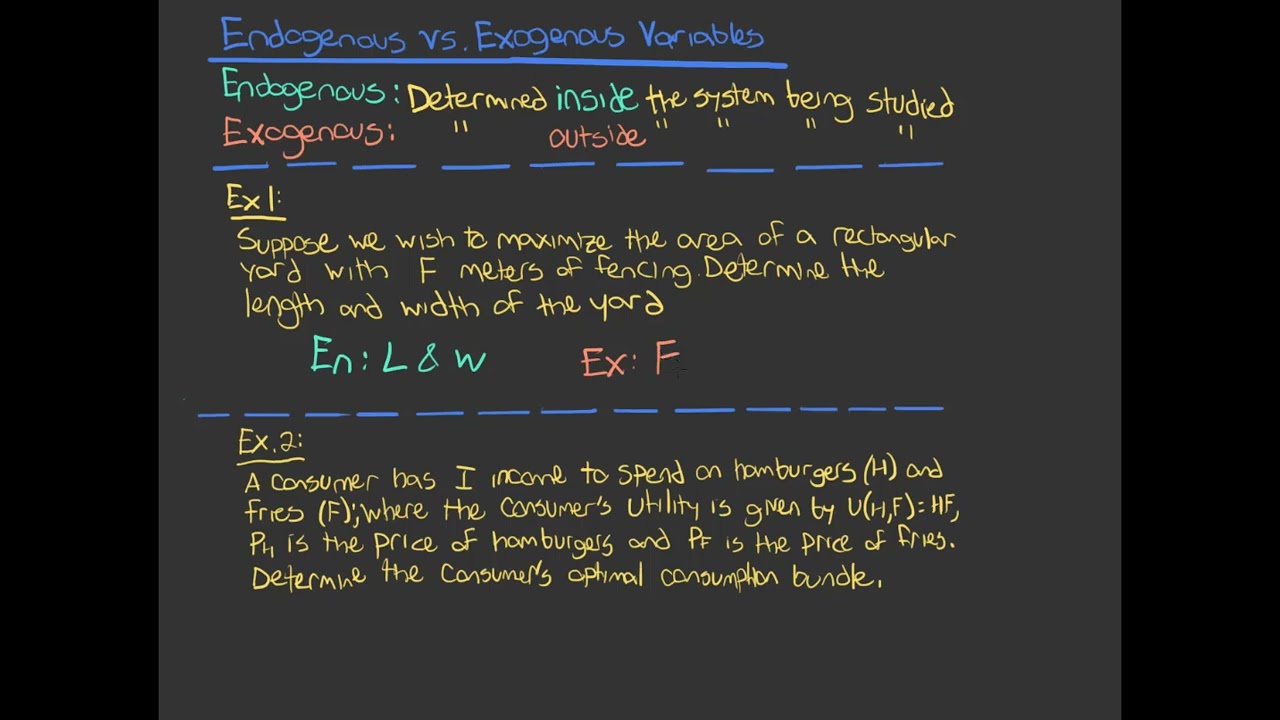 Endogenous vs. Exogenous Variables
Endogenous: Determined inside the system being studied
Exogenous: " outside " " " "
Ex 1:
Suppose we wish to maximize the area of a rectangular
yard with F meters of fencing. Determine the
length and width of the yard
En: L & W Ex: F
Ex. 2:
A consumer has I income to spend on hamburgers (H) and
fries (F); where the consumer's utility is given by U(H,F)=HF,
PH is the price of hamburgers and PF is the price of fries.
Determine the consumer's optimal consumption bundle.